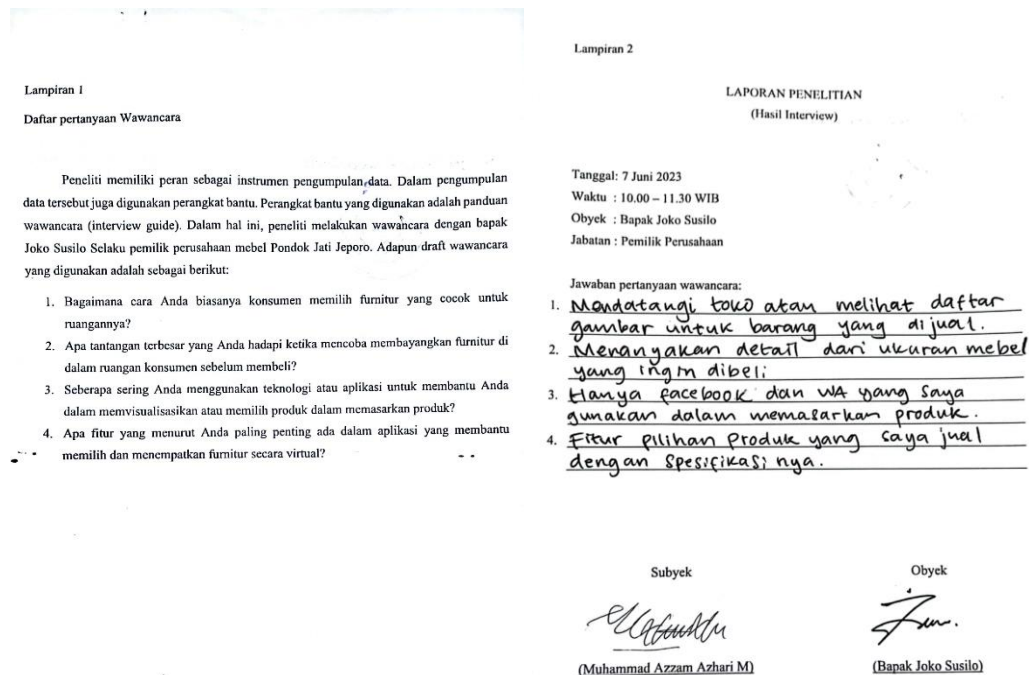 Lampiran 1
Daftar pertanyaan Wawancara
Peneliti memiliki peran sebagai instrumen pengumpulan data. Dalam pengumpulan
data tersebut juga digunakan perangkat bantu. Perangkat bantu yang digunakan adalah panduan
wawancara (interview guide). Dalam hal ini, peneliti melakukan wawancara dengan bapak
Joko Susilo Selaku pemilik perusahaan mebel Pondok Jati Jeporo. Adapun draft wawancara
yang digunakan adalah sebagai berikut:
1. Bagaimana cara Anda biasanya konsumen memilih furnitur yang cocok untuk
ruangannya?
2. Apa tantangan terbesar yang Anda hadapi ketika mencoba membayangkan furnitur di
dalam ruangan konsumen sebelum membeli?
3. Seberapa sering Anda menggunakan teknologi atau aplikasi untuk membantu Anda
dalam memvisualisasikan atau memilih produk dalam memasarkan produk?
4. Apa fitur yang menurut Anda paling penting ada dalam aplikasi yang membantu
memilih dan menempatkan furnitur secara virtual?
Lampiran 2
LAPORAN PENELITIAN
(Hasil Interview)
Tanggal: 7 Juni 2023
Waktu : 10.00 – 11.30 WIB
Obyek : Bapak Joko Susilo
Jabatan : Pemilik Perusahaan
Jawaban pertanyaan wawancara:
1. Mendatangi toko atau melihat daftar
gambar untuk barang yang dijual.
2. Menanyakan detail dari ukuran mebel
yang ingin dibeli
3. Hanya facebook dan WA yang saya
gunakan dalam memasarkan produk.
4. Fitur pilihan Produk yang saya jual
dengan Spesifikasi nya.
Subyek
Obyek
(Muhammad Azzam Azhari M)
(Bapak Joko Susilo)